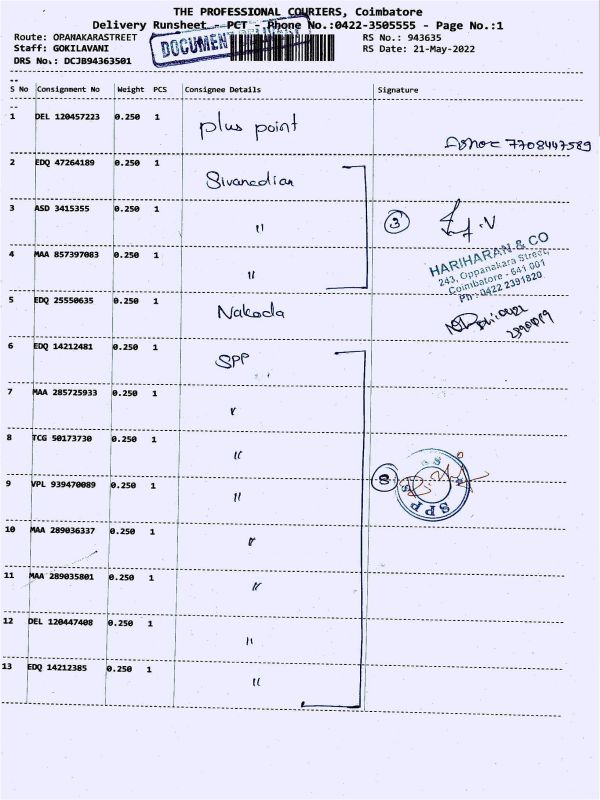 THE PROFESSIONAL COURIERS, Coimbatore
Delivery Runsheet - PCT - Phone No.:0422-3505555 - Page No.:1
Route: OPANAKARASTREET
RS No.: 943635
Staff: GOKILAVANI
DOCUMENT
RS Date: 21-May-2022
DRS No.: DCJB94363501
S No Consignment No Weight PCS Consignee Details Signature
1 DEL 120457223 0.250 1 plus point
7708447589
2 EDQ 47264189 0.250 1 Sivanedian
3 ASD 3415355 0.250 1 "
3
4 MAA 857397083 0.250 1 "
HARIHARAN & CO
243, Oppanakara Street,
Coimbatore - 641 001
Ph: 0422 2391820
5 EDQ 25550635 0.250 1 Nakoda
6 EDQ 14212481 0.250 1 SPP
7 MAA 285725933 0.250 1 "
8 TCG 50173730 0.250 1 "
8
SPP
9 VPL 939470089 0.250 1 "
10 MAA 289036337 0.250 1 "
11 MAA 289035801 0.250 1 "
12 DEL 120447408 0.250 1 "
13 EDQ 14212385 0.250 1 "